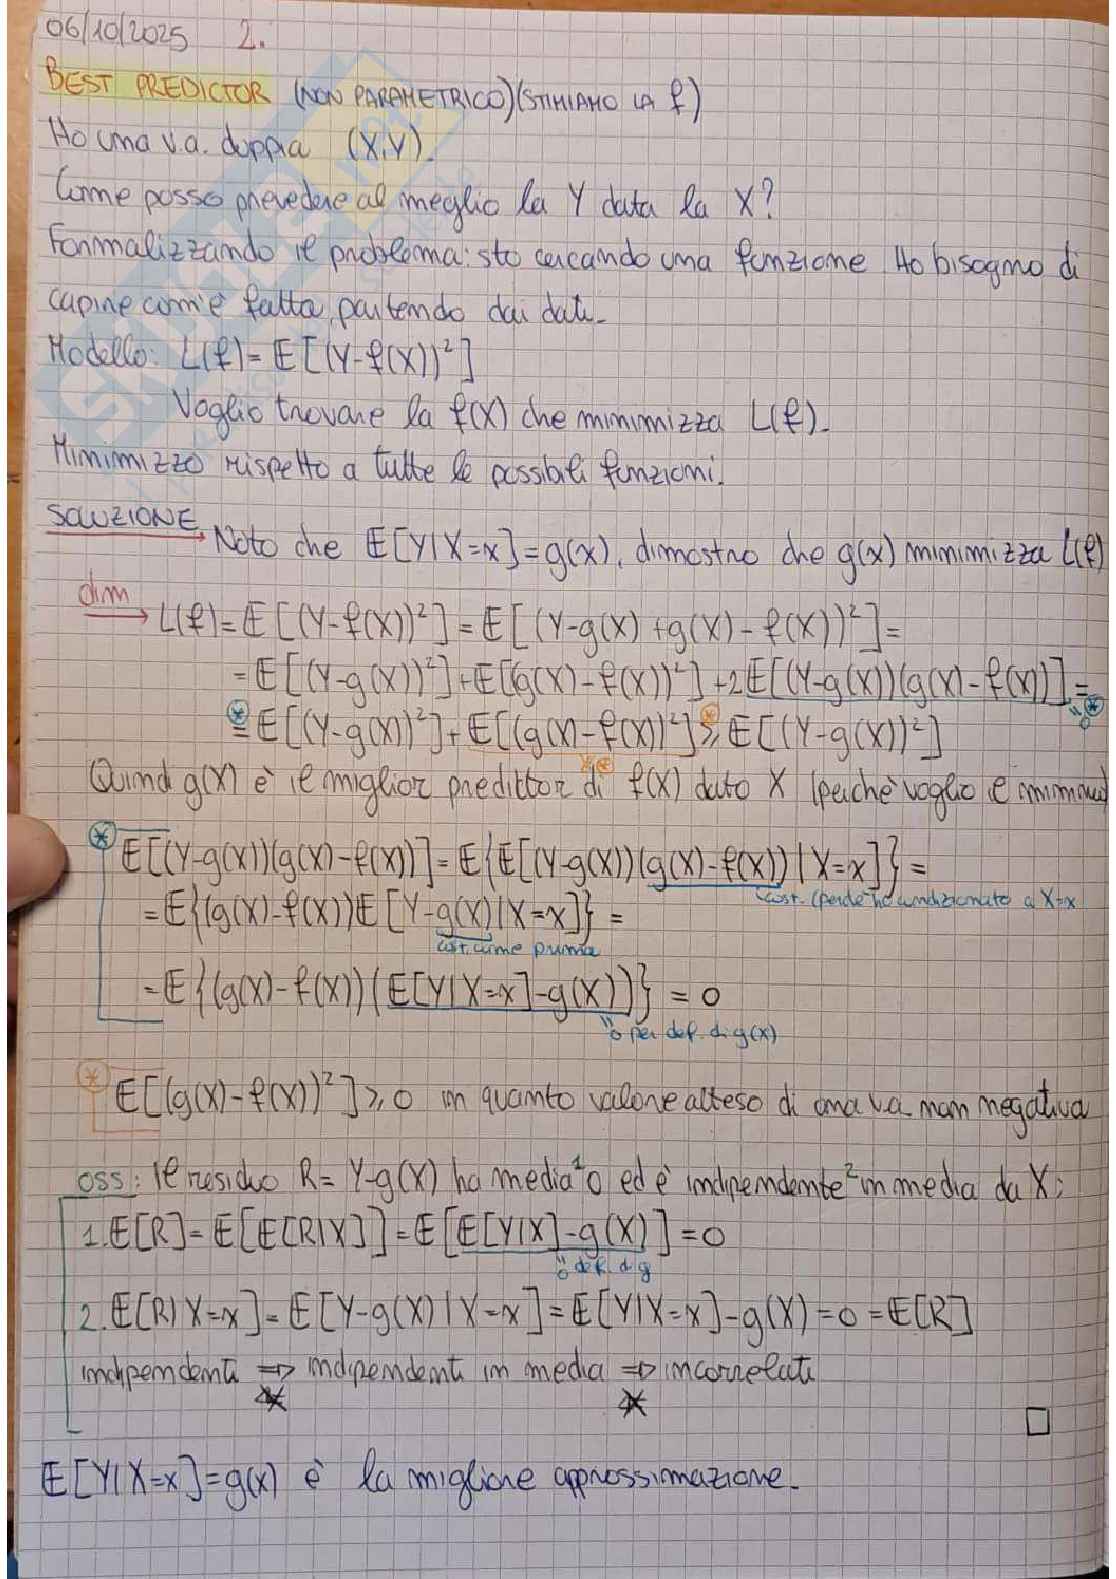 06/10/2025 2.
BEST PREDICTOR (NON PARAMETRICO)(STIMIAMO LA f)
Ho una v.a. doppia (X,Y).
Come posso prevedere al meglio la Y data la X?
Formalizzando il problema: sto cercando una funzione. Ho bisogno di
capire com'è fatta partendo dai dati.
Modello: L(f) = E[(Y-f(X))²]
Voglio trovare la f(X) che minimizza L(f).
Minimizzo rispetto a tutte le possibili funzioni.
SOLUZIONE Noto che E[Y|X=x]=g(x), dimostro che g(x) minimizza L(f)
dim L(f)=E[(Y-f(X))²]=E[(Y-g(X)+g(X)-f(X))²]=
=E[(Y-g(X))²]+E[(g(X)-f(X))²]+2E[(Y-g(X))(g(X)-f(X))]=
"0 *
* = E[(Y-g(X))²]+E[(g(X)-f(X))²] ≥* E[(Y-g(X))²]
Quindi g(X) è il miglior predittor di f(X) dato X (perchè voglio il minimo)
* E[(Y-g(X))(g(X)-f(X))]=E{E[(Y-g(X))(g(X)-f(X))|X=x]}=
cost. (perché ho condizionato a X=x
=E{(g(X)-f(X))E[Y-g(X)|X=x]}=
cost. come prima
=E{(g(X)-f(X))(E[Y|X=x]-g(X))}=0
"0 per def. di g(x)
* E[(g(X)-f(X))²]≥0 in quanto valore atteso di una v.a. non negativa
oss: il residuo R=Y-g(X) ha media¹ 0 ed è indipendente² in media da X:
1. E[R]=E[E[R|X]]=E[E[Y|X]-g(X)]=0
"0 def. di g
2. E[R|X=x]=E[Y-g(X)|X=x]=E[Y|X=x]-g(X)=0=E[R]
indipendenti ⇒ indipendenti in media ⇒ incorrelati
E[Y|X=x]=g(x) è la migliore approssimazione.